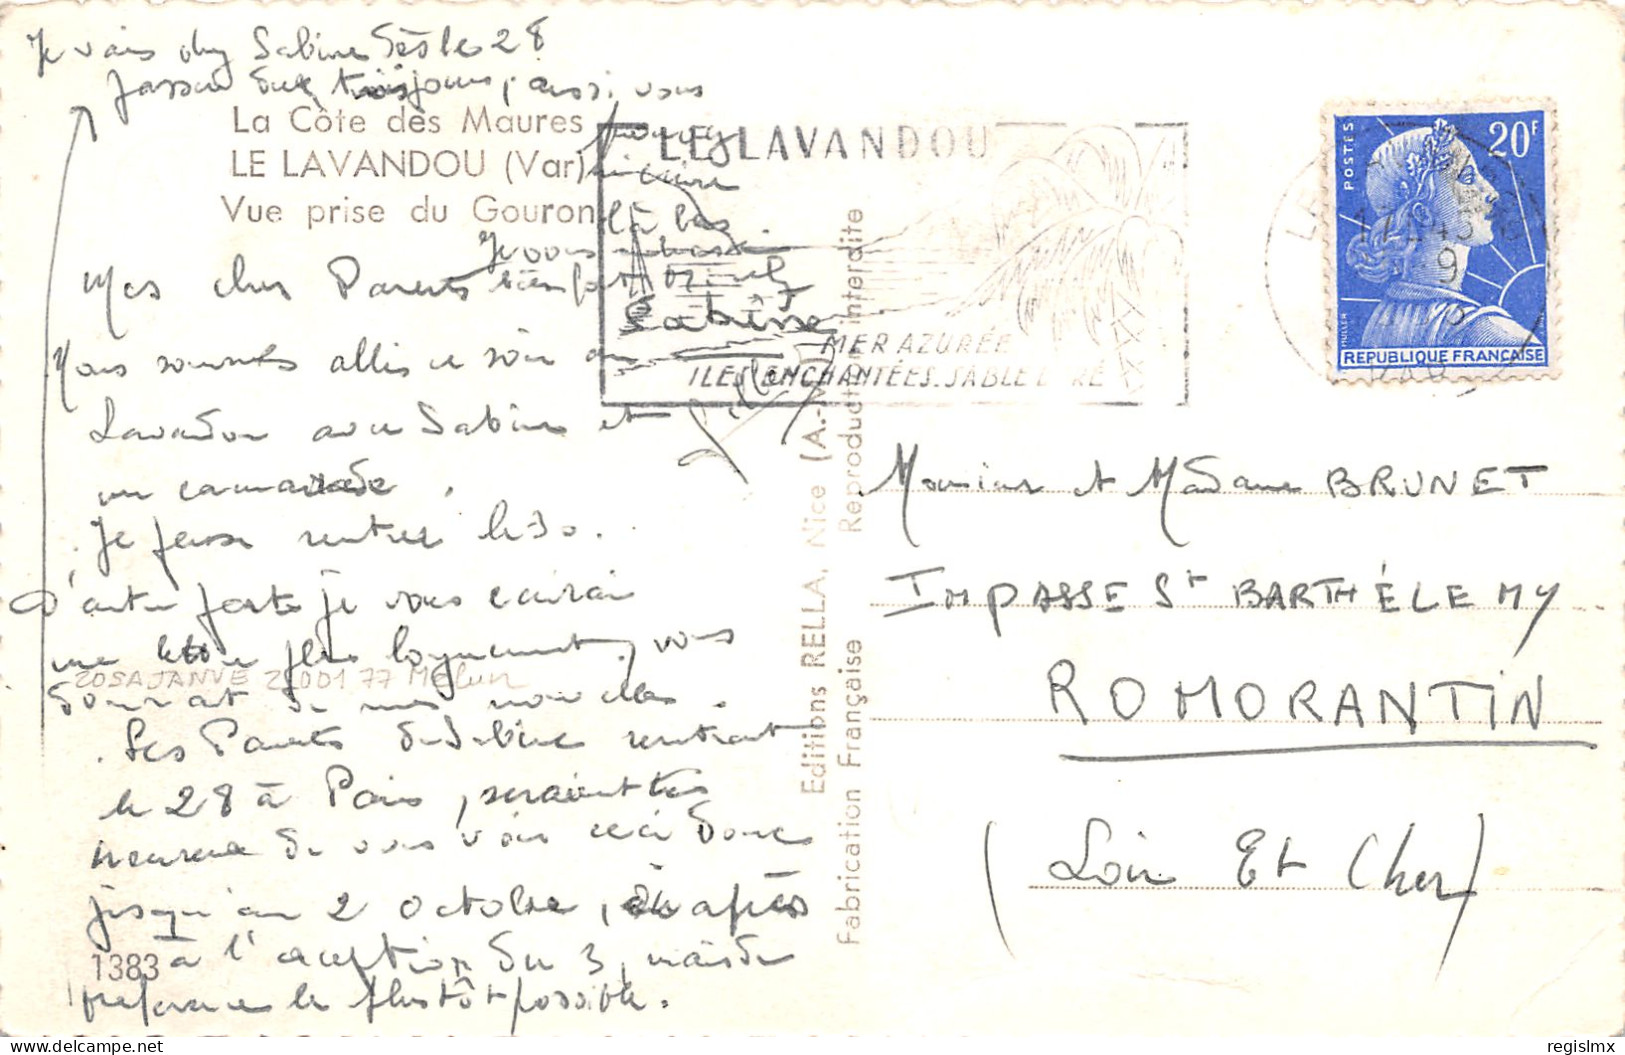 Je vais chez Sabine dès le 28
passer deux trois jours, aussi vous
pouvez
m'écrire
là bas
Je vous embrasse
bien fort
Sabine
La Côte des Maures
LE LAVANDOU (Var)
Vue prise du Gouron
Mes chers Parents
Nous sommes allés ce soir au
Lavandou avec Sabine et
un camarade.
Je pense rentrer le 30.
D'autre part je vous écrirai
une lettre plus longuement, vous
donnant de mes nouvelles.
ROSAJANVE 21001 77 Melun
Les Parents de Sabine rentrant
le 28 à Paris, seraient très
heureux de vous voir ceci donc
jusqu'au 2 octobre, ou après
à l'exception du 3, mais de
préférence le plus tôt possible.
1383
Editions RELLA, Nice (A.-M
Fabrication Française Reproduction interdite
LE LAVANDOU
MER AZURÉE
ILES ENCHANTÉES. SABLE DORÉ
POSTES
20F
MULLER
REPUBLIQUE FRANÇAISE
VAR
Monsieur et Madame BRUNET
IMPASSE St BARTHÉLEMY
ROMORANTIN
(Loir Et Cher)
regislmx